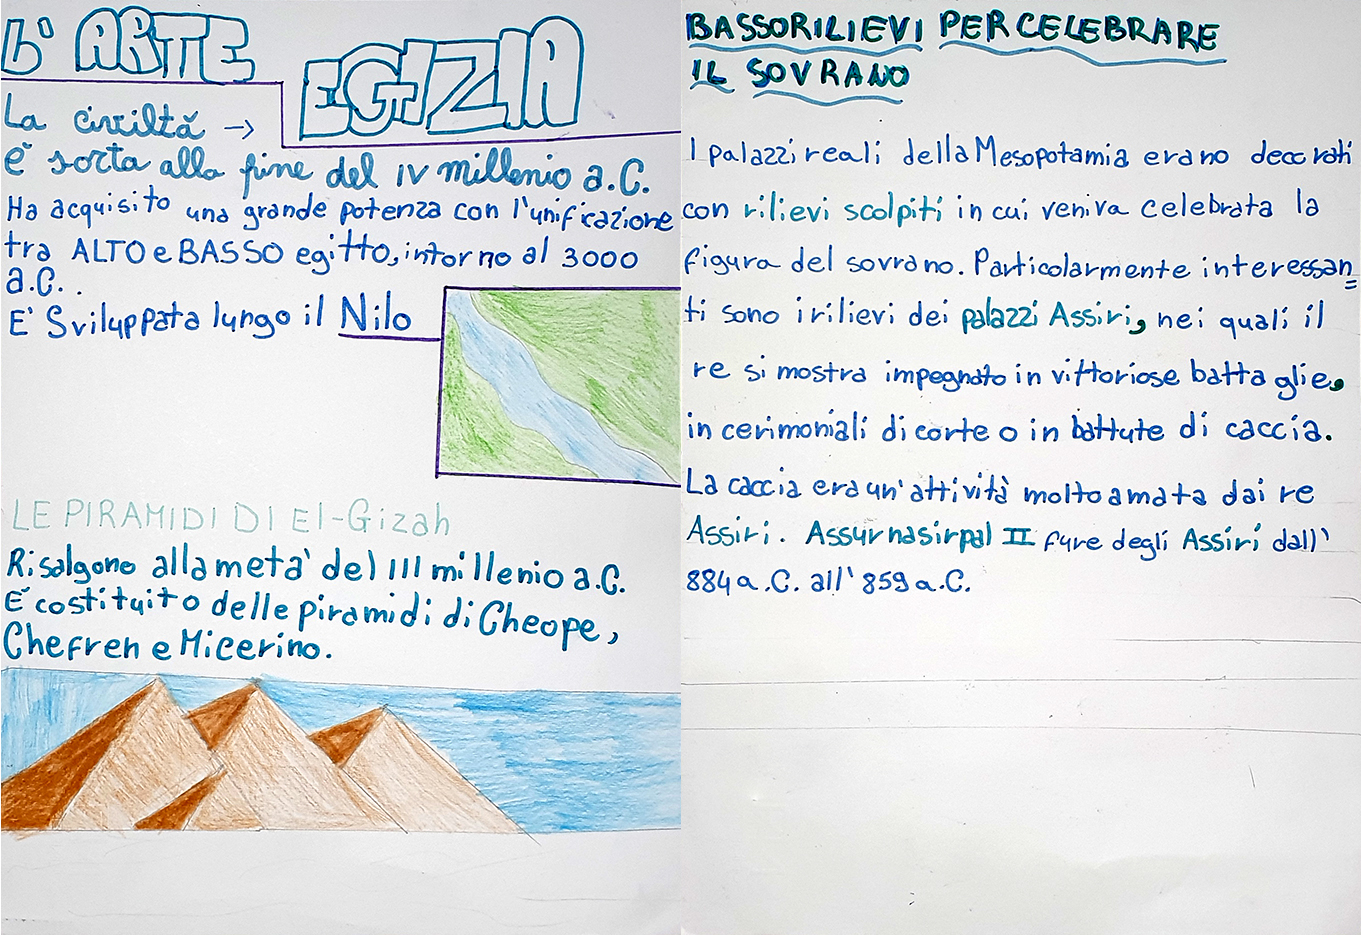 L' ARTE
EGIZIA
La civiltá →
è sorta alla fine del IV millenio a.C.
Ha acquisito una grande potenza con l'unificazione
tra ALTO e BASSO egitto, intorno al 3000
a.C. .
E' Sviluppata lungo il Nilo
LE PIRAMIDI DI El-Gizah
Risalgono alla meta' del III millenio a.C.
È costituito delle piramidi di Cheope,
Chefren e Micerino.
BASSORILIEVI PER CELEBRARE
IL SOVRANO
I palazzi reali della Mesopotamia erano decorati
con rilievi scolpiti in cui veniva celebrata la
figura del sovrano. Particolarmente interessan=
ti sono i rilievi dei palazzi Assiri, nei quali il
re si mostra impegnato in vittoriose battaglie,
in cerimoniali di corte o in battute di caccia.
La caccia era un'attività molto amata dai re
Assiri. Assurnasirpal II degli Assiri dall'
884 a.C. all' 859 a.C.